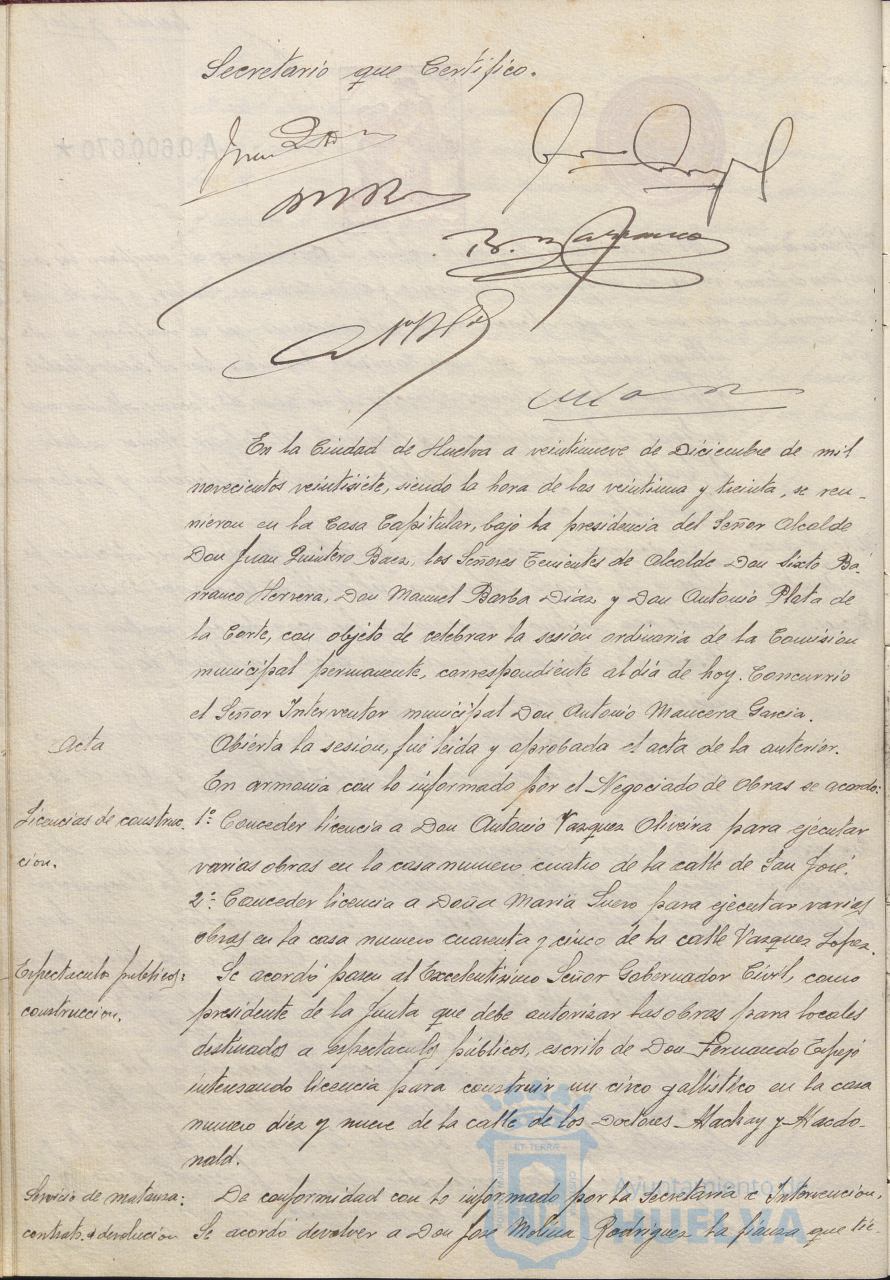 Secretario que Certifico.
B. Barranco
En la Ciudad de Huelva a veintinueve de Diciembre de mil
novecientos veintisiete, siendo la hora de las veintiuna y treinta, se reu-
nieron en la Casa Capitular, bajo la presidencia del Señor Alcalde
Don Juan Quintero Baez, los Señores Tenientes de Alcalde Don Sixto Ba-
rranco Herrera, Don Manuel Barba Diaz y Don Antonio Plata de
la Corte, con objeto de celebrar la sesión ordinaria de la Comision
municipal permanente, correspondiente al día de hoy. Concurrió
el Señor Interventor municipal Don Antonio Mancera Garcia.
Acta
Abierta la sesión, fué leida y aprobada el acta de la anterior.
En armonia con lo informado por el Negociado de Obras se acordo:
Licencias de construc-
cion.
1º Conceder licencia a Don Antonio Vazquez Oliveira para ejecutar
varias obras en la casa numero cuatro de la calle de San José.
2º Conceder licencia a Doña Maria Suero para ejecutar varias
obras en la casa numero cuarenta y cinco de la calle Vazquez Lopez.
Espectaculos publicos:
construccion.
Se acordó pasen al Excelentisimo Señor Gobernador Civil, como
presidente de la Junta que debe autorizar las obras para locales
destinados a espectaculos públicos, escrito de Don Fernando Espejo
interesando licencia para construir un circo gallistico en la casa
numero diez y nueve de la calle de los Doctores Machay y Macdo-
nald.
Servicio de matanza:
contrato. devolucion
De conformidad con lo informado por la Secretaria e Intervencion,
Se acordó devolver a Don José Molina Rodriguez la fianza que tie-
Ayuntamiento de
HUELVA